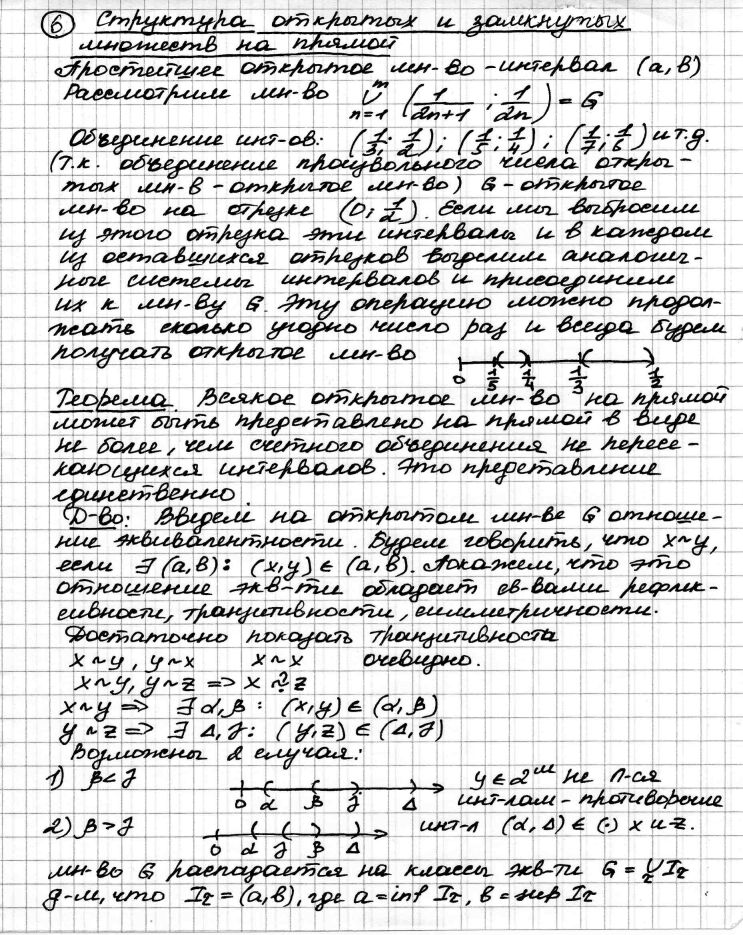 ⑥ Структура открытых и замкнутых
множеств на прямой
Простейшее открытое мн-во - интервал (a, b)
Рассмотрим мн-во ∪ⁿ₌₁^m (1/2n+1 ; 1/2n) = G
Объединение инт-ов: (1/3; 1/2); (1/5; 1/4); (1/7; 1/6) и т.д.
(т.к. объединение произвольного числа откры-
тых мн-в - открытое мн-во) G - открытое
мн-во на отрезке (0; 1/2). Если мы выбросим
из этого отрезка эти интервалы и в каждом
из оставшихся отрезков выделим аналогич-
ные системы интервалов и присоединим
их к мн-ву G. Эту операцию можно продол-
жать сколько угодно число раз и всегда будем
получать открытое мн-во
0 1/5 1/4 1/3 1/2
Теорема. Всякое открытое мн-во на прямой
может быть представлено на прямой в виде
не более, чем счетного объединения не пересе-
кающихся интервалов. Это представление
единственно.
Д-во: Введем на открытом мн-ве G отноше-
ние эквивалентности. Будем говорить, что x~y,
если ∃ (a, b): (x, y) ∈ (a, b). Докажем, что это
отношение экв-ти обладает св-вами рефлек-
сивности, транзитивности, симметричности.
Достаточно показать транзитивность
x~y, y~x x~x очевидно.
x~y, y~z => x ~ z ?
x~y => ∃ α, β : (x, y) ∈ (α, β)
y~z => ∃ Δ, J : (y, z) ∈ (Δ, J)
Возможны 2 случая:
1) β < J 0 α β J Δ y ∈ 2ᵘᵐ не п-ся
инт-лам - противоречие
2) β > J 0 α J β Δ инт-л (α, Δ) ∈ (·) x и z.
мн-во G распадается на классы экв-ти G = ∪ I_τ
д-м, что I_τ = (a, b), где a = inf I_τ, b = sup I_τ